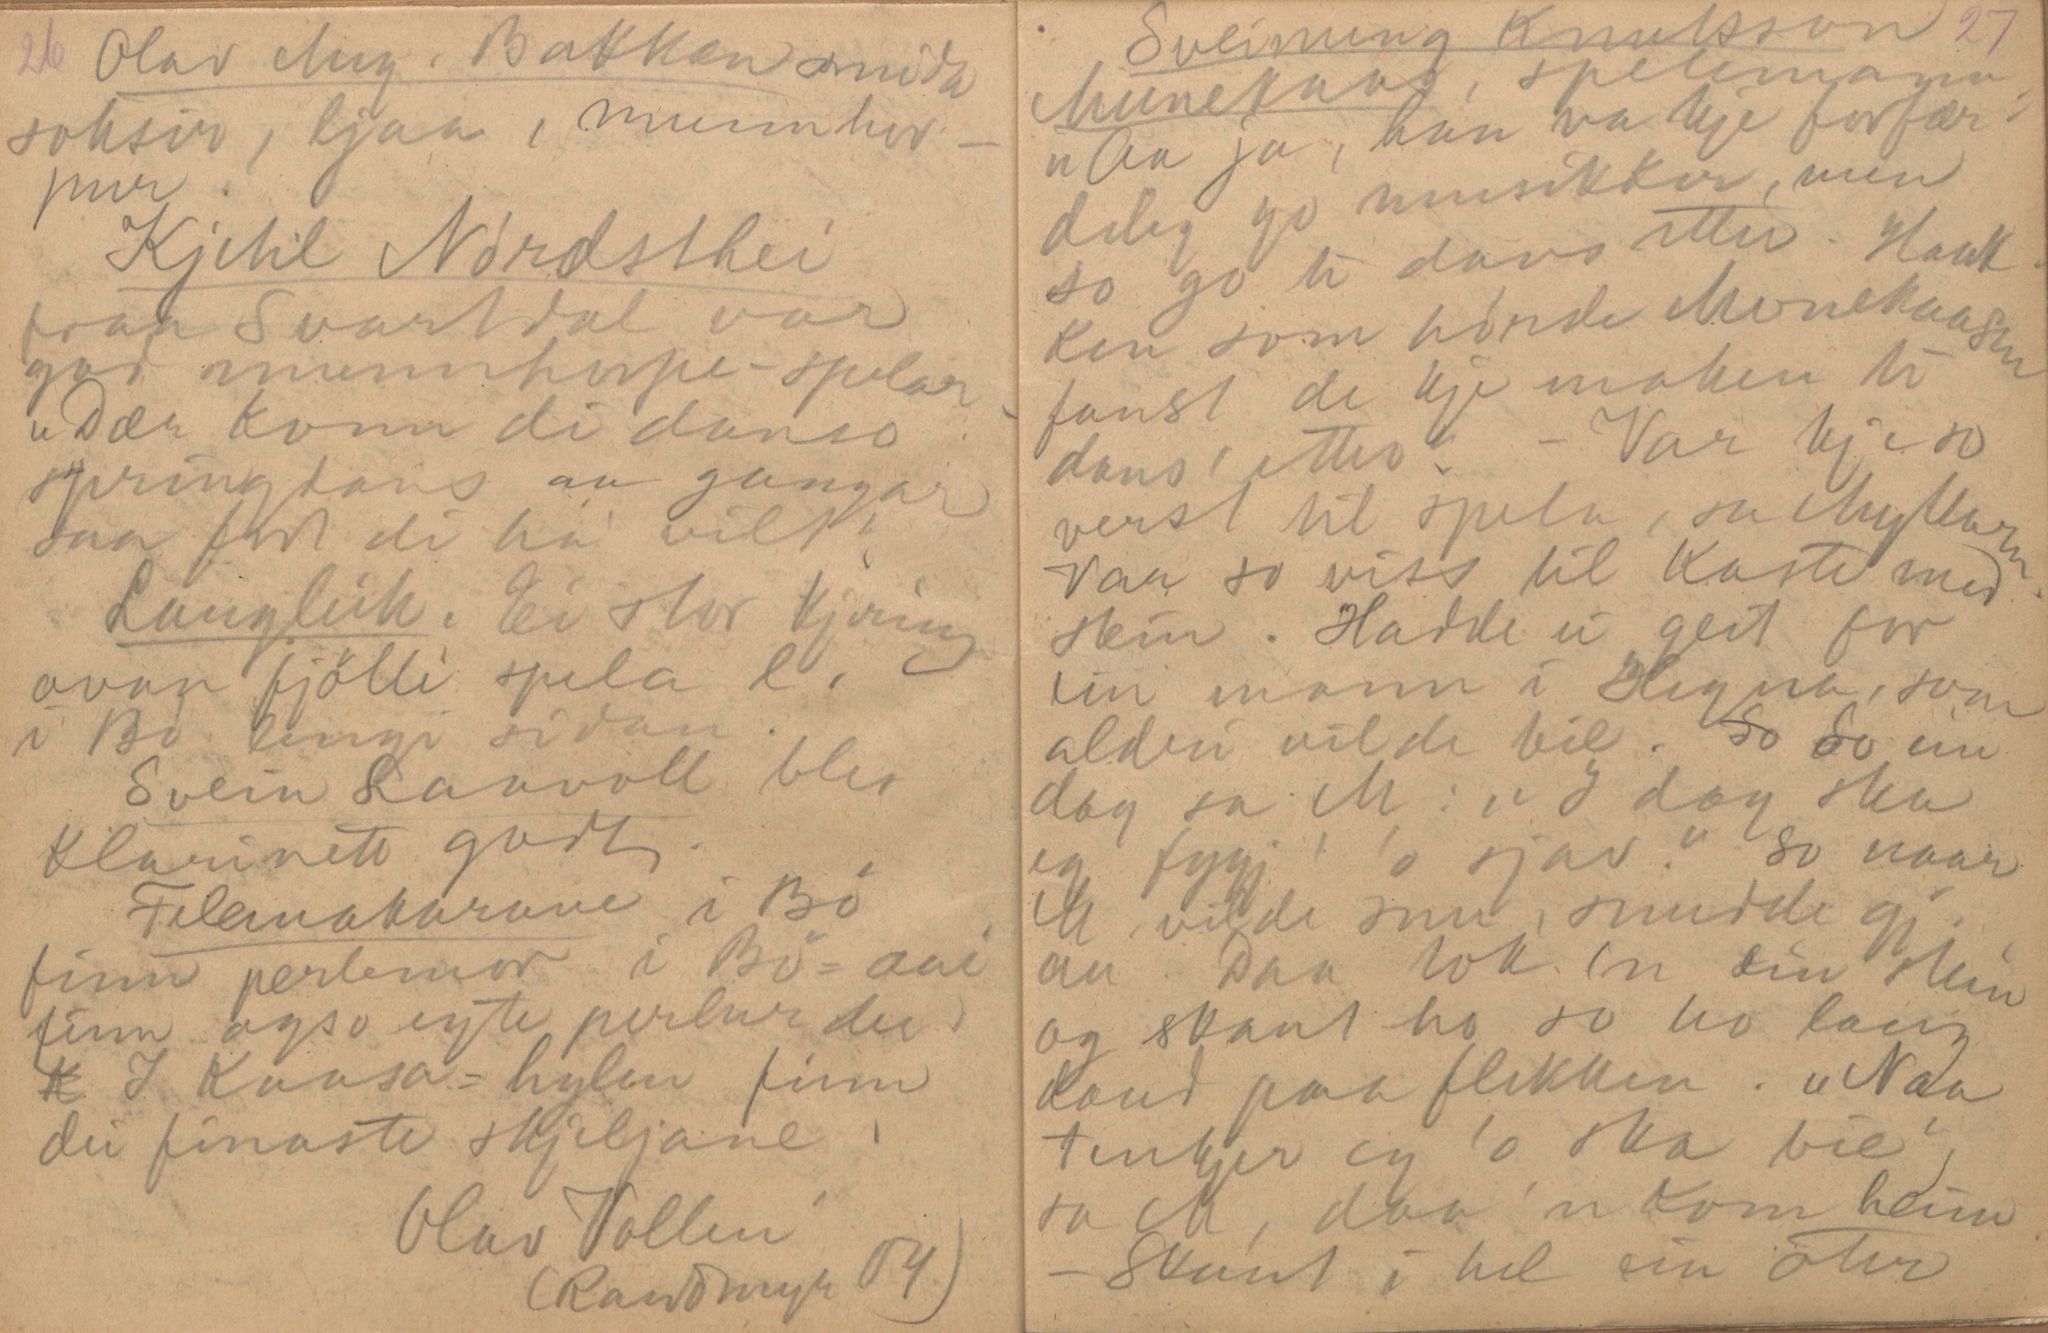 26 Olav Aug. Bakken smida
soksir, ljaa, munnhor-
pur.
Kjetil Nórdsthei
fraa Svartdal var
god munnhorpe-spelar
„Dær konn di danse
springdans aa gangar
saa fort di ha' vilt"
Langleik. Ei stor kjæring
ovan fjölli spela l.
i Bö lengi sidan.
Svein Laavoll bles
klarinett godt.
Felemakarane i Bö
finn perlemor i Bö=aai
finn ogso egte perlur dei
I Kaasa=hylen finn
dei finaste skjeljane.
Olav Vollen
(Randmyr 54)
27
Sveinung Knutsson
Munekaas, spelemann.
„Aa ja, han va kje forfær-
deleg go musikkar, men
so go ti dans etter. Haak-
ken som hörde Monekaasen
fanst de kje maken ti
dans' etter". - Var kje so
verst til spela, sa Myllaren.
Var so viss til kaste med
stein. Hadde ei geit for
ein mann i Hegna, som
aldri vilde bie. So ein
dag sa M: „I dag ska
eg fygj' 'o sjav." So naar
M vilde snu, snudde gj.
au. Daa tok 'n ein stein
og skaut ho so ho laag
daud paa flekken. „Naa
tenkjer eg 'o ska bie",
sa M, daa 'n kom heim
- Skaut i hel ein oter